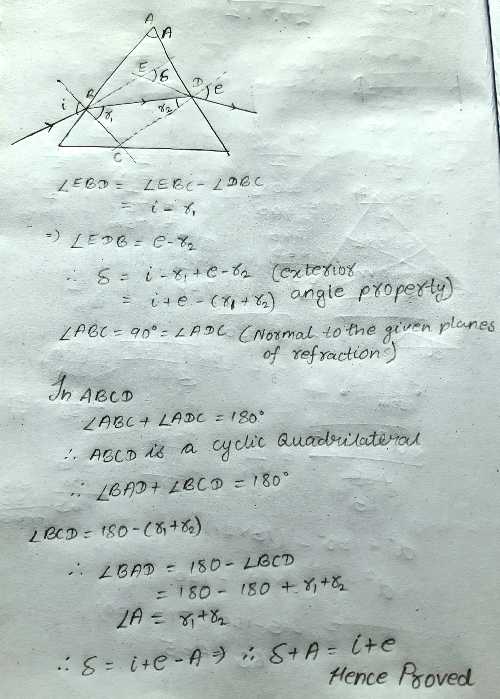 A
A
E
δ
i
B
D
e
r₁
r₂
C
∠EBD = ∠EBC - ∠DBC
= i - r₁
⇒ ∠EDB = e - r₂
∴ δ = i - r₁ + e - r₂ (exterior
= i + e - (r₁ + r₂) angle property)
∠ABC = 90° = ∠ADC (Normal to the given planes
of refraction)
In ABCD
∠ABC + ∠ADC = 180°
∴ ABCD is a cyclic Quadrilateral
∴ ∠BAD + ∠BCD = 180°
∠BCD = 180 - (r₁ + r₂)
∴ ∠BAD = 180 - ∠BCD
= 180 - 180 + r₁ + r₂
∠A = r₁ + r₂
∴ δ = i + e - A ⇒ ∴ δ + A = i + e
Hence Proved